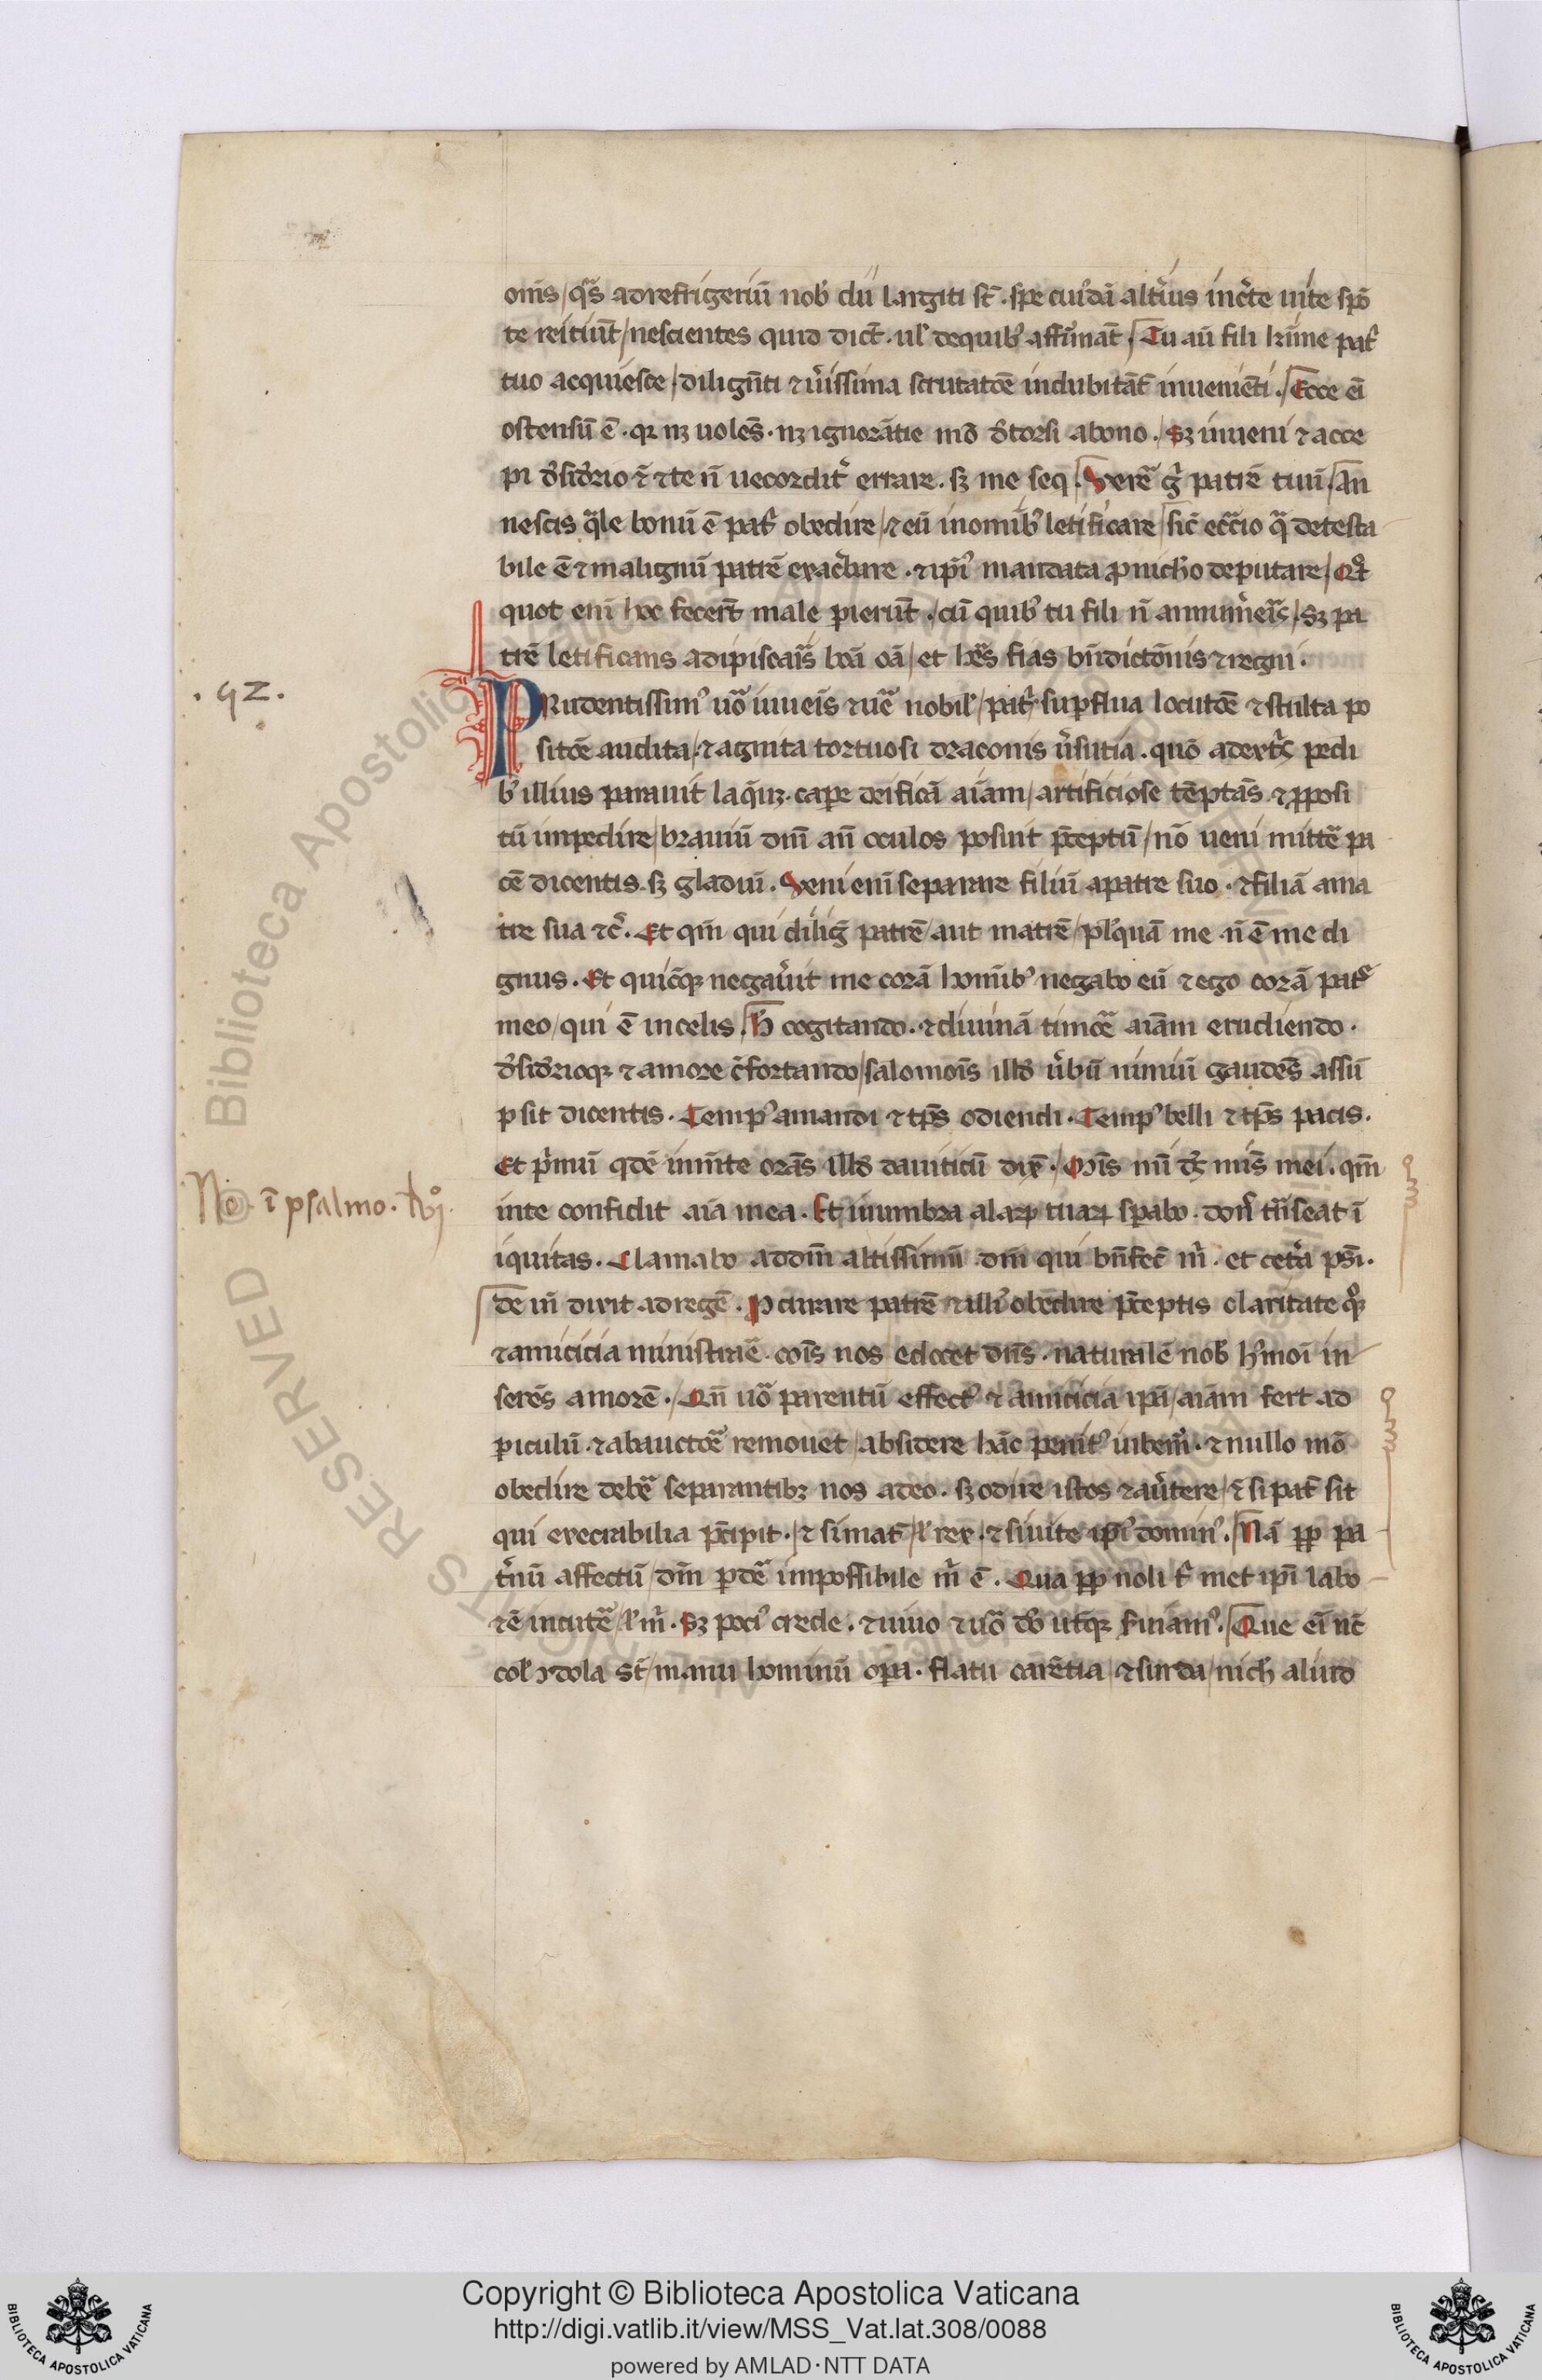 onis / qͣs ad refrigeriū nob̕ diu largiti st̄ . spe cuiꝰdā alt̕ius inc̕te uite spō
te reiciūt / nescientes quid dict̄ . ul̕ de quibꝰ affirmāt . Tu aū fili kr̄ine pat̕
tuo acquiesce / diligēti ⁊ u̕issima scrutatōe indubitāt̕ inueniēti . Ecce ei̅
ostensū ē . qꝛ nꝫ uolēs . nꝫ ignorātie mō d̕torsi a bono . Sꝫ inueni ⁊ acce
pi d̕sid̕io ⁊ te n̄ uecordit̕ errare . sꝫ me seq̕ . Verē g̕ patrē tuū . An
nescis qͣle bonū ē pat̕ obedire / ⁊ eū in omībꝰ letificare / sic̄ qͣ detesta
bile ē ⁊ malignū patrē exac̕bare . ⁊ ip̄iꝰ mandata ꝓ nich̕o deputare / Qͦt
quot eni̅ hoc fecer̄t male pierūt . cū quibꝰ tu fili n̄ annum̕eis̄ . Sꝫ pa
trē letificans adipiscais̄ bo̅a oi̅a / et he̅s fias bn̄dictōnis ⁊ regni .
. 92 .
PRudentissimꝰ uͦ iuuei̅s ⁊ ue̅ nobil̕ / pat̕ supflua locutōe ⁊ stulta po
sitōe audita / ⁊ agnita tortuosi draconis u̕sutia . quō a dext̕s pedi
bꝰ illius parauit laq̕uꝫ . cape deificā ai̅am / artificiose tēptās . ⁊ ꝓposi
tū impedire / brauiū dn̄i an̄ oculos posuit p̄ceptū / nō ueni mitte̅ pa
cē dicentis . sꝫ gladiū . Veni eni̅ separare filiū a patre suo . ⁊ filiā a ma
tre sua ⁊c̕ . Et qm̄ qui diligꝫ patrē / aut matrē / pl̕quā me . n̄ ē me di
gnus . Et quicūqꝫ negau̕it me corā homībꝰ negabo eū ⁊ ego corā pat̕
meo / qui ē in celis . H̄ cogitando . ⁊ diuinā timōe ai̅am erudiendo .
d̕sid̕ioqꝫ ⁊ amore c̄fortando / salomōis illd̕ u̕bū nimiū gaudēs assū
psit dicentis . Tempꝰ amandi ⁊ tp̄s odiendi . Tempꝰ belli ⁊ tp̄s pacis .
Et p̕mū qͥdē in mēte orās illd̕ dauiticū dix̄ . Mis̄ mi̅ ds̄ mis̄ mei . qm̄
No . ī psalmo .
in te confidit ai̅a mea . Et in umbra alaꝝ tuaꝝ spabo . don̄ tn̄seat ī
iquitas . Clamabo ad dm̄ altissimū dm̄ qui bn̄fec̄ m̕ . et cet̕a ps̄i .
de in̄ dixit ad regē . Pcurare patrē ⁊ illiꝰ obedire p̄ceptis claritate qͦqꝫ
⁊ amicicia ministrare̅ . cōis nos edocet dn̄s . naturalē nob̕ hꝰmōi in
serēs amorē . Qn̄ uͦ parentū effectꝰ ⁊ amicicia ipā / ai̅am fert ad
piculū . ⁊ ab auctōe removet / absidere hāc penitꝰ iubem̕ . ⁊ nullo mō
obedire debe̅ separantibꝫ nos a deo . sꝫ odire istos ⁊ au̕tere / ⁊ si pat̄ sit
qui execrabilia p̄cipit . / ⁊ si mat̄ / l̕ rex . / ⁊ si uite ip̄iꝰ dominꝰ . Nā ꝓp pa
t̕nū affectū / dm̄ ꝑde̅ impossibile m̕ ē . Qua ꝓp noli t̕ met ipi̅ labo
rē incute̅ / l̕ m̕ . Sꝫ pociꝰ crede . ⁊ uiuo ⁊ uͦ dō utqꝫ s̕uiamꝰ . Que ei̅ nc̄
col̕ ydola st̄ / manu hominū opa . flatu carētia / ⁊ surda / nich̕ aliud
Copyright © Biblioteca Apostolica Vaticana
http://digi.vatlib.it/view/MSS_Vat.lat.308/0088
powered by AMLAD·NTT DATA
BIBLIOTECA APOSTOLICA VATICANA
BIBLIOTECA APOSTOLICA VATICANA